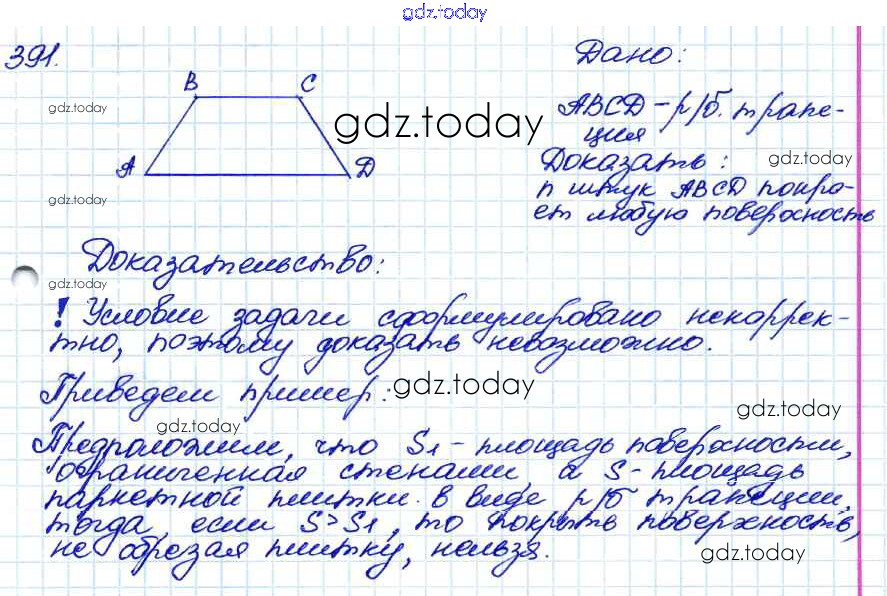 gdz.today
391.
Дано:
B C
gdz.today
ABCD - р/б. трапе-
ция
gdz.today
A D
Доказать:
gdz.today
n штук ABCD покро-
ет любую поверхность
gdz.today
Доказательство:
gdz.today
! Условие задачи сформулировано некоррек-
тно, поэтому доказать невозможно.
Приведем пример:
gdz.today
gdz.today
gdz.today
Предположим, что S1 - площадь поверхности,
ограниченная стенами, а S - площадь
паркетной плитки в виде р/б трапеции,
тогда, если S > S1, то покрыть поверхность,
не обрезая плитку, нельзя.
gdz.today